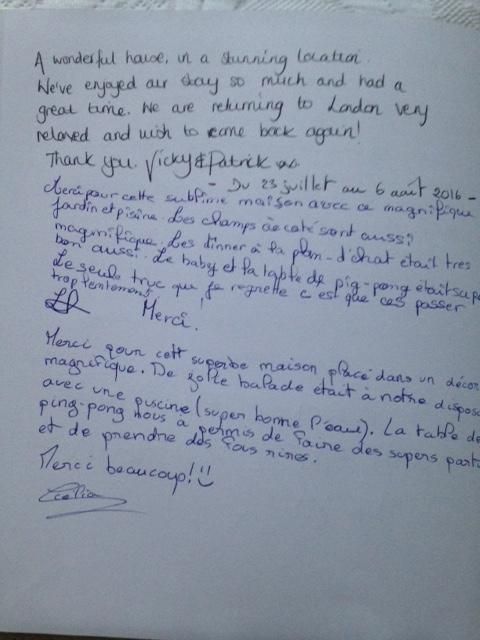 A wonderful house, in a stunning location.
We've enjoyed our stay so much and had a
great time. We are returning to London very
relaxed and wish to come back again!
Thank you. Vicky & Patrick xx.
- Du 23 juillet au 6 août 2016 -
Merci pour cette sublime maison avec ce magnifique
jardin et piscine. Les champs à coté sont aussi
magnifique. Les dinner à la plan-d'chat était tres
bon aussi. Le baby et la table de pig-pong était supe
Le seule truc que je regrette c'est que ces passer
trop lentement
Merci.
Merci pour cett superbe maison placé dans un décor
magnifique. De jolie balade était à notre dispos
avec une piscine (super bonne l'eau). La table de
ping-pong nous a permis de faire des supers part
et de prendre des fous rires.
Merci beaucoup!
Célia